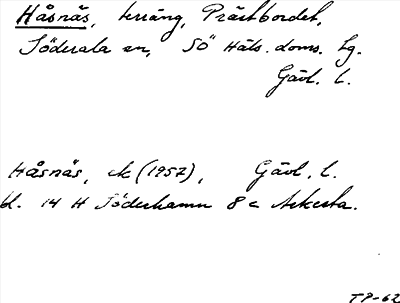 Håsnäs, terräng, Prästbordet,
Söderala sn, SÖ Häls. doms. lg.
Gävl. l.
Håsnäs, ek (1957), Gävl. l.
bl. 14 H Söderhamn 8 c Askesta.
TP-62